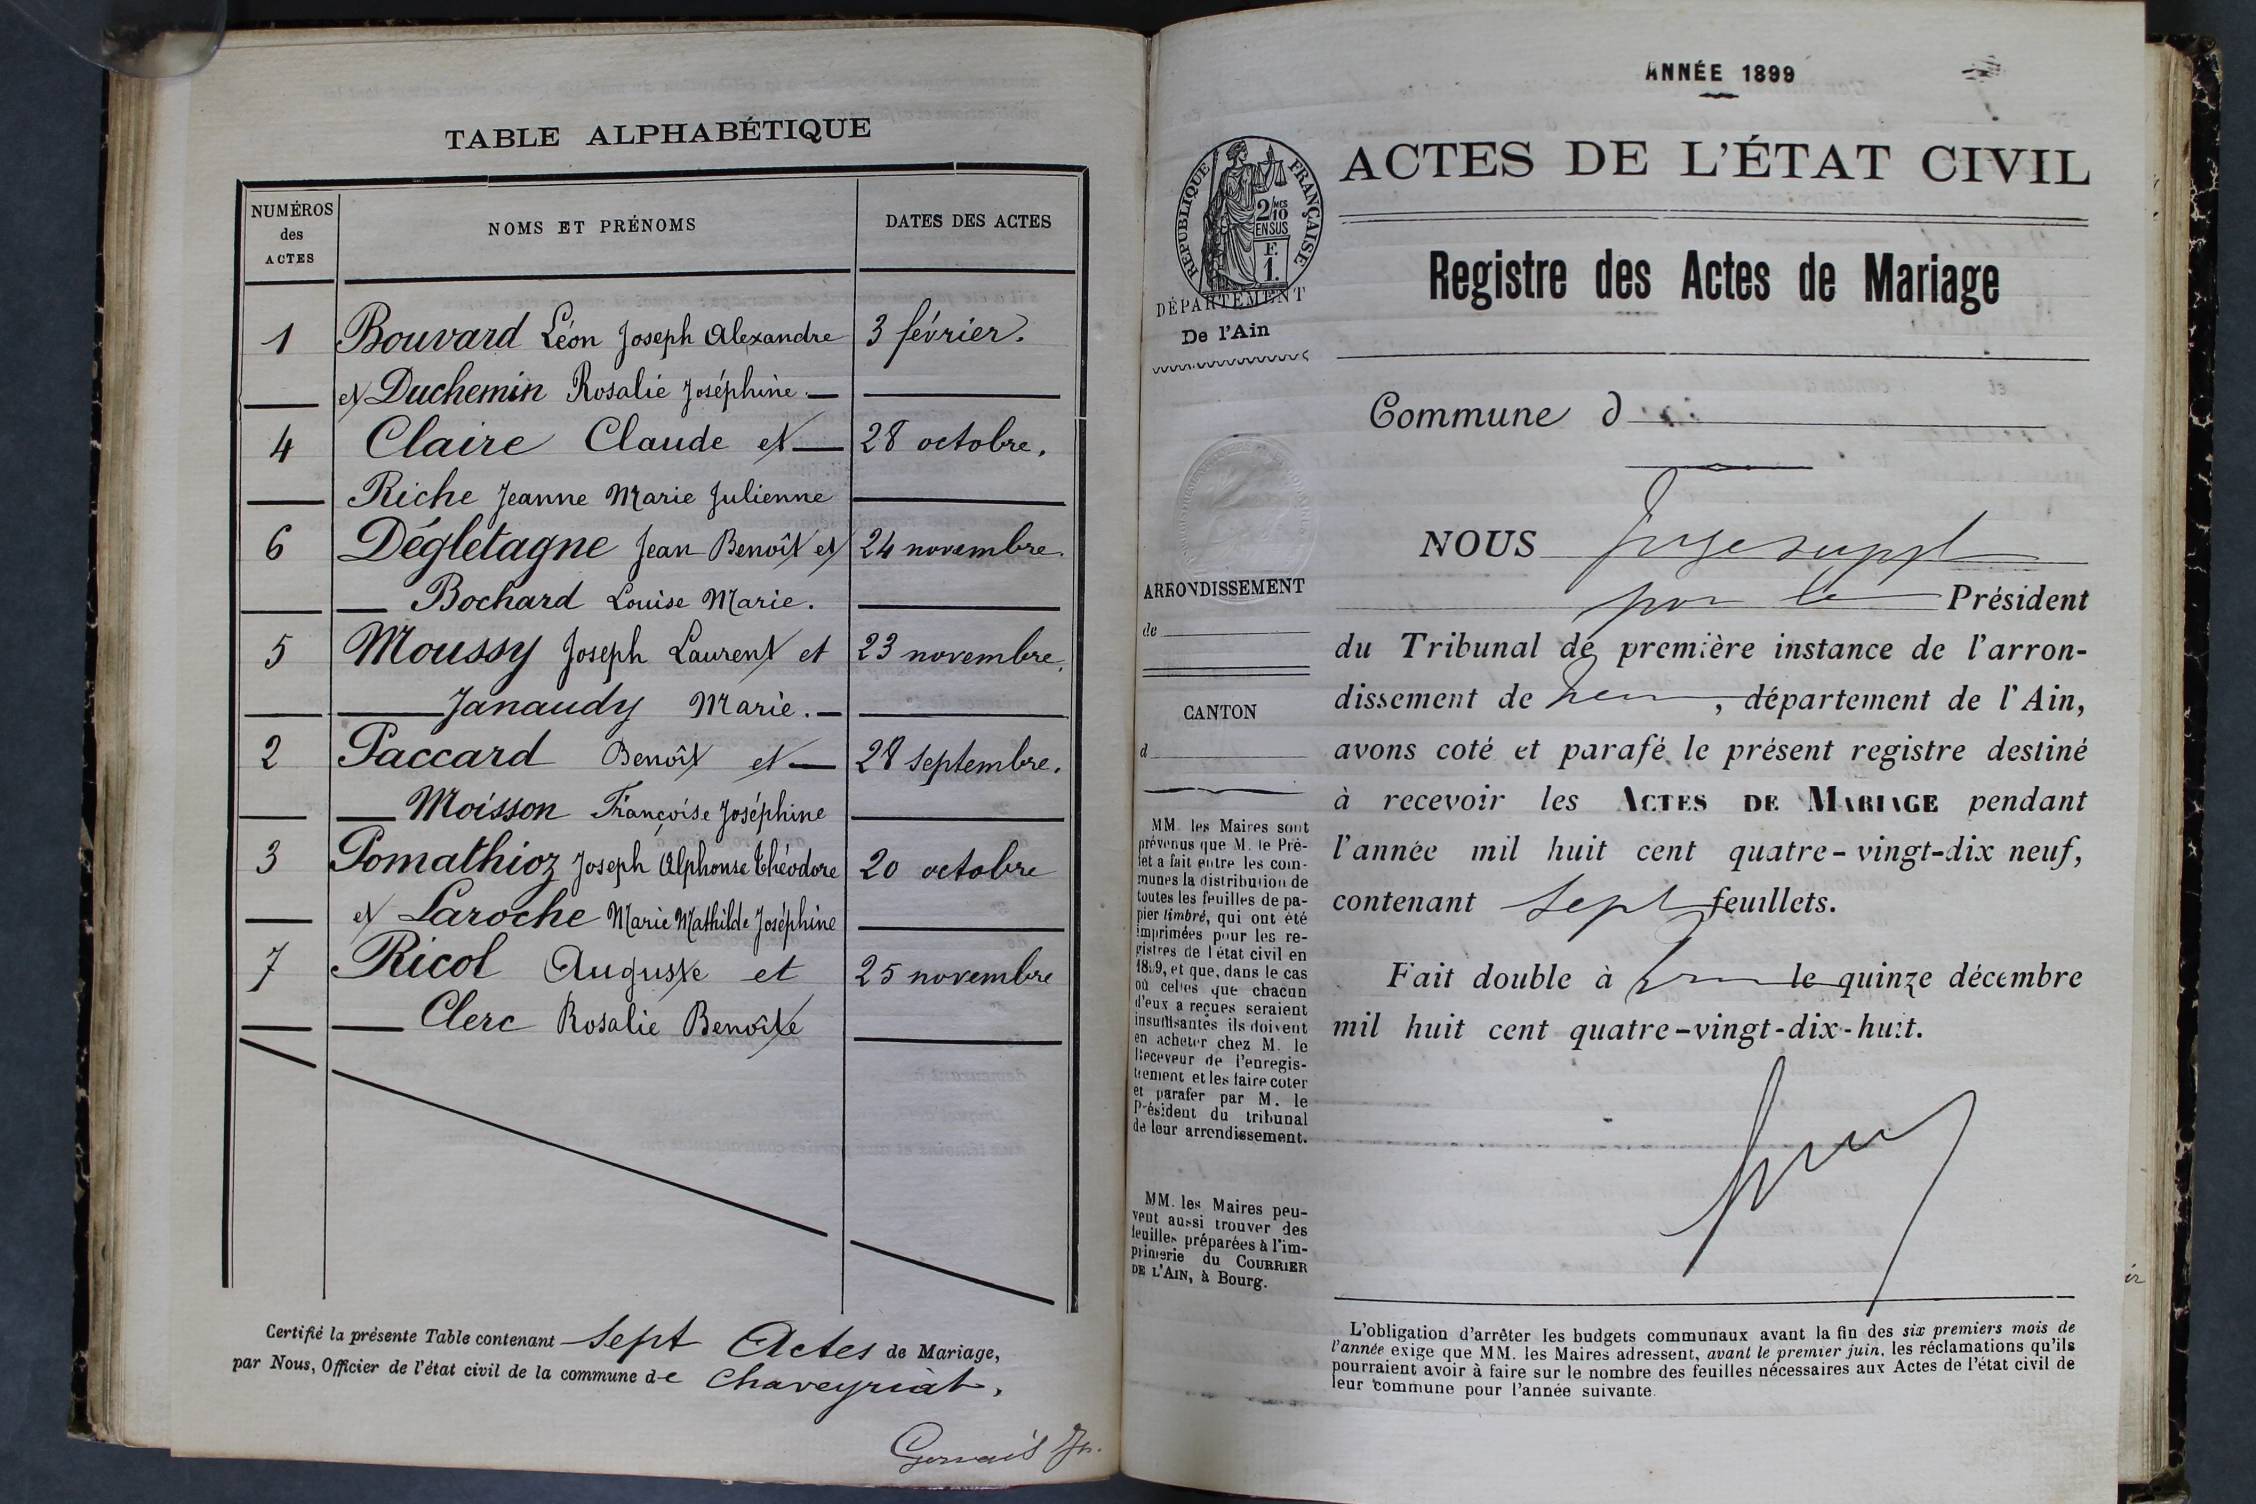 TABLE ALPHABÉTIQUE
NUMÉROS des ACTES
NOMS ET PRÉNOMS
DATES DES ACTES
1 Bouvard Léon Joseph Alexandre 3 février.
et Duchemin Rosalie Joséphine
4 Claire Claude et 28 octobre.
Riche Jeanne Marie Julienne
6 Dégletagne Jean Benoît et 24 novembre.
Bochard Louise Marie.
5 Moussy Joseph Laurent et 23 novembre.
Janaudy Marie.
2 Paccard Benoît et 28 septembre.
Moisson Françoise Joséphine
3 Pomathioz Joseph Alphonse Théodore 20 octobre
et Laroche Marie Mathilde Joséphine
7 Ricol Auguste et 25 novembre
Clerc Rosalie Benoîte
Certifié la présente Table contenant sept Actes de Mariage,
par Nous, Officier de l'état civil de la commune de Chaveyriat.
Gervais
ANNÉE 1899
RÉPUBLIQUE FRANÇAISE
2/10 MES
EN SUS
F.
1.
DÉPARTEMENT
De l'Ain
ARRONDISSEMENT
de
CANTON
d
MM. les Maires sont
prévenus que M. le Pré-
fet a fait entre les com-
munes la distribution de
toutes les feuilles de pa-
pier timbré, qui ont été
imprimées pour les re-
gistres de l'état civil en
1899, et que, dans le cas
où celles que chacun
d'eux a reçues seraient
insuffisantes ils doivent
en acheter chez M. le
Receveur de l'enregis-
trement et les faire coter
et parafer par M. le
Président du tribunal
de leur arrondissement.
MM. les Maires peu-
vent aussi trouver des
feuilles préparées à l'im-
primerie du COURRIER
DE L'AIN, à Bourg.
ACTES DE L'ÉTAT CIVIL
Registre des Actes de Mariage
Commune d
NOUS Juge suppl
pour le Président
du Tribunal de première instance de l'arron-
dissement de , département de l'Ain,
avons coté et parafé le présent registre destiné
à recevoir les ACTES DE MARIAGE pendant
l'année mil huit cent quatre-vingt-dix neuf,
contenant sept feuillets.
Fait double à le quinze décembre
mil huit cent quatre-vingt-dix-huit.
L'obligation d'arrêter les budgets communaux avant la fin des six premiers mois de
l'année exige que MM. les Maires adressent, avant le premier juin, les réclamations qu'ils
pourraient avoir à faire sur le nombre des feuilles nécessaires aux Actes de l'état civil de
leur commune pour l'année suivante.